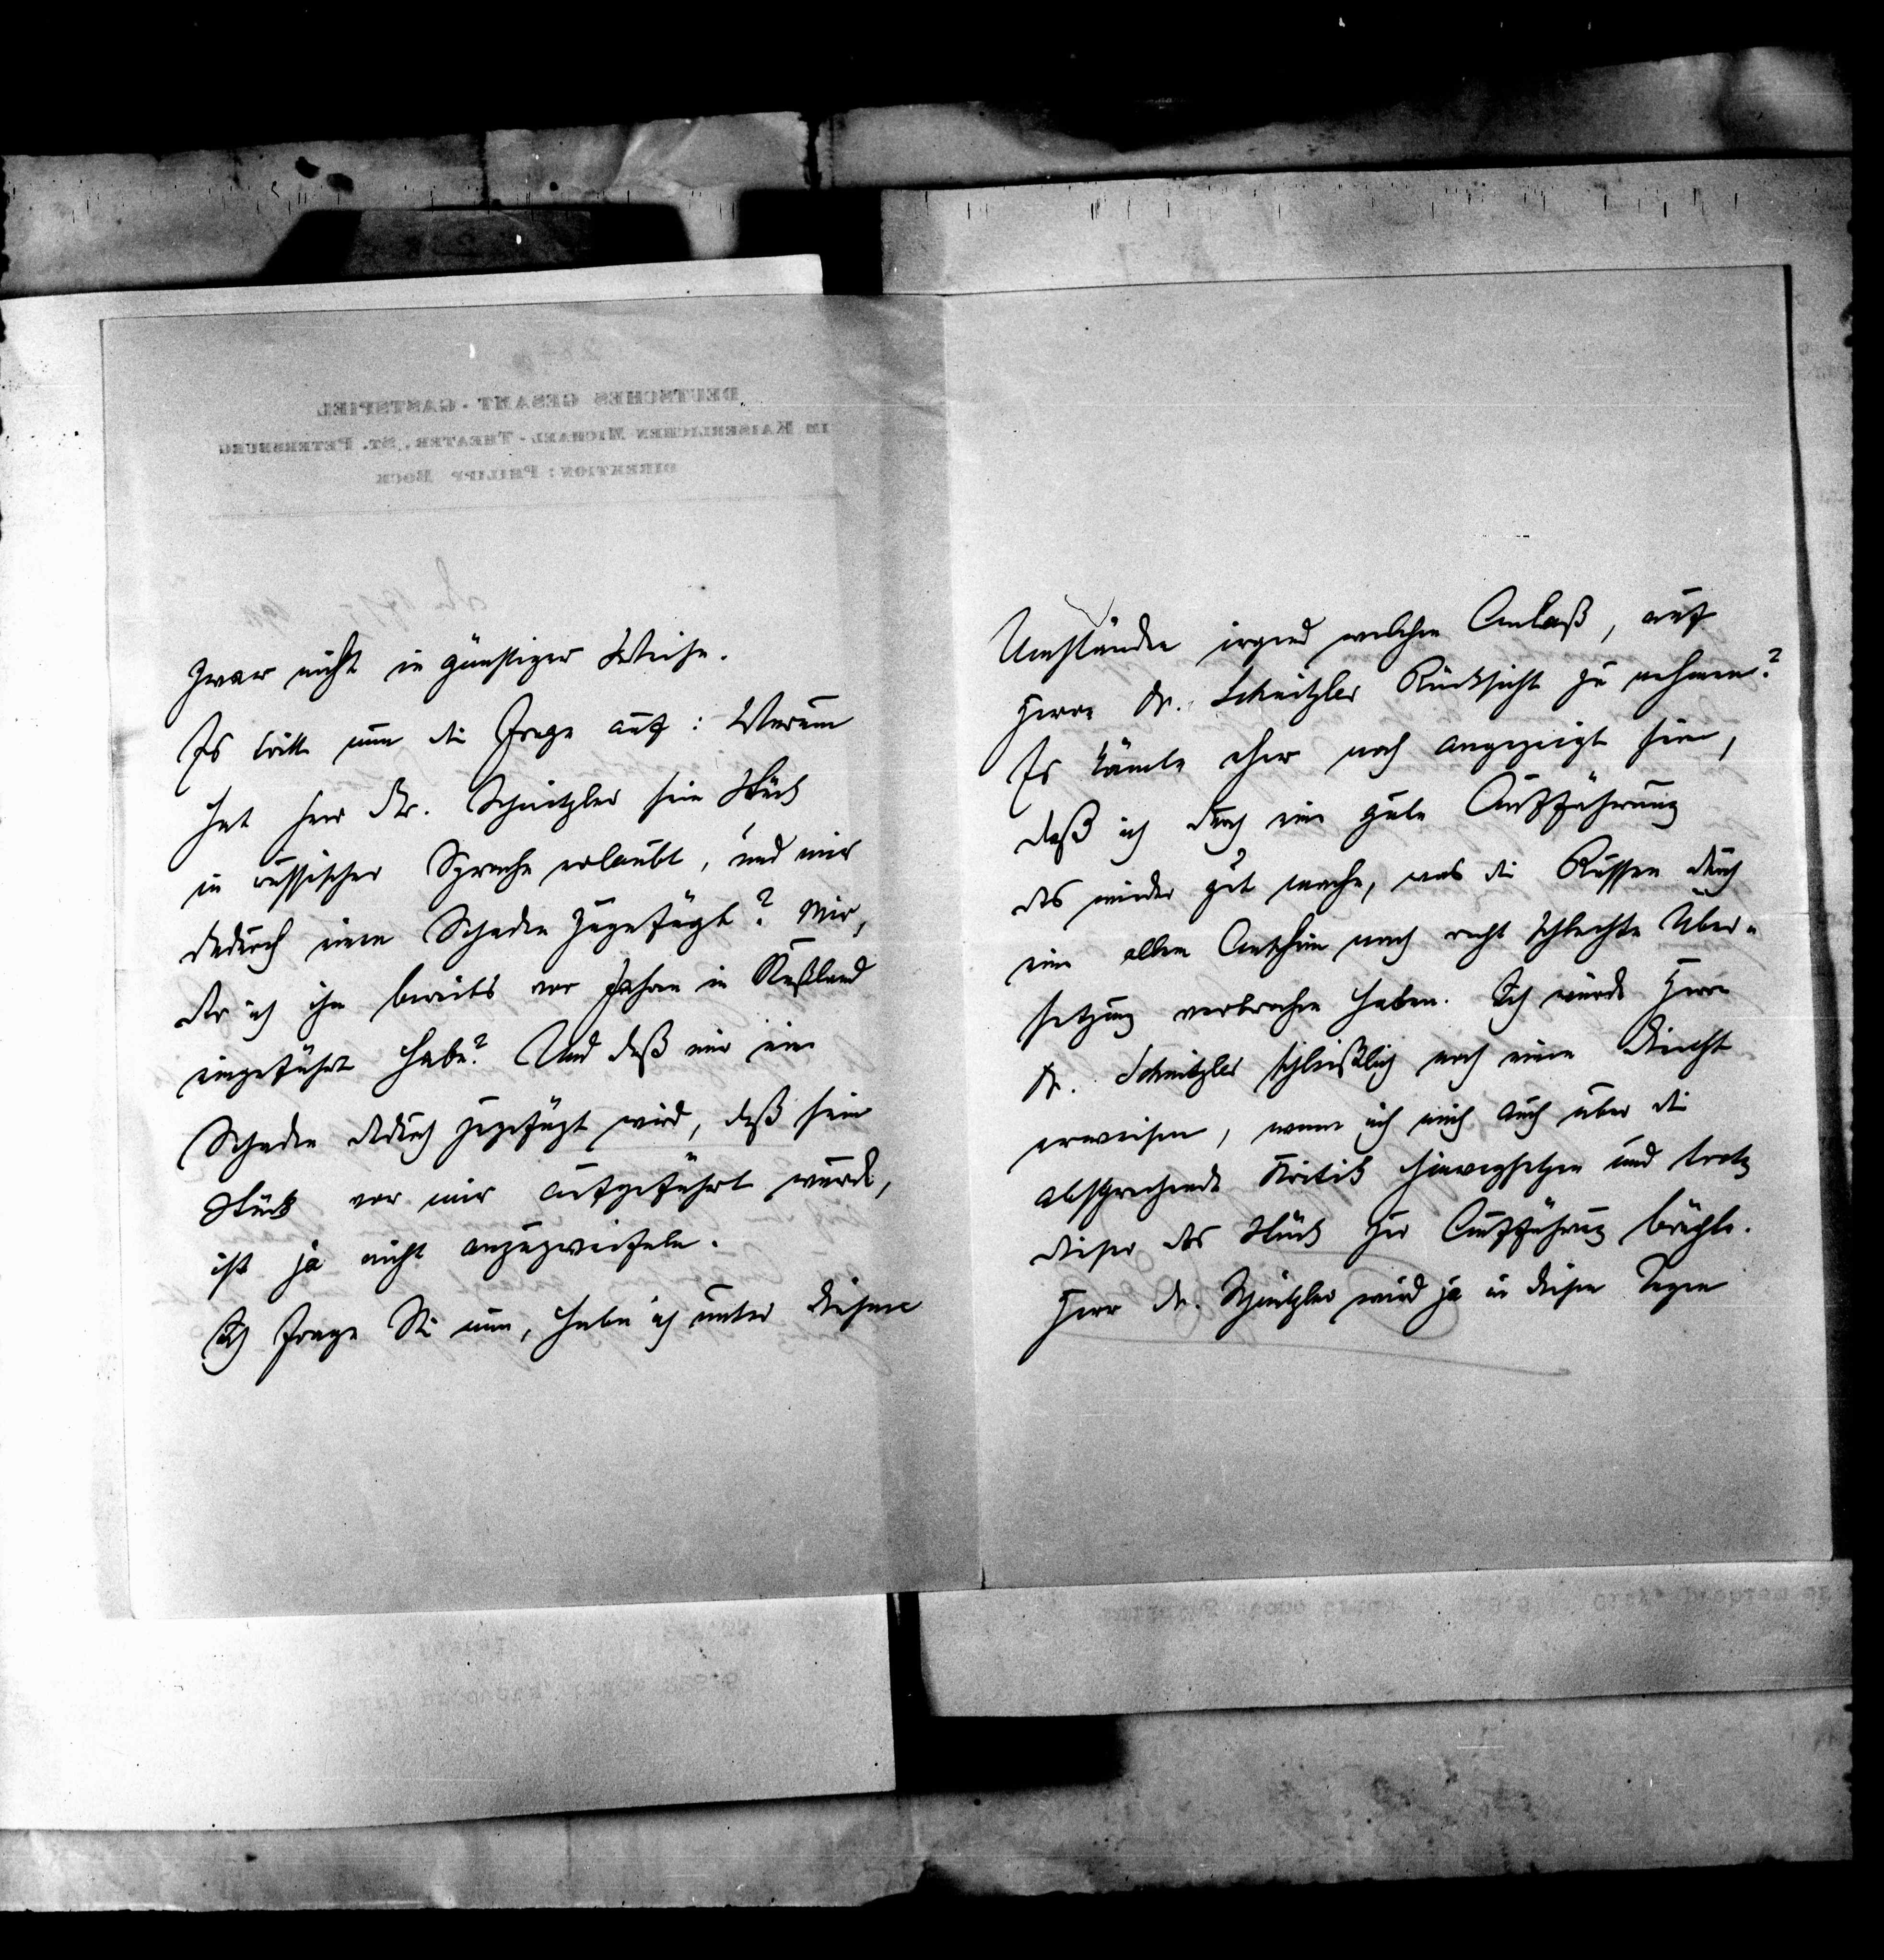 zwar nicht in günstiger Weise.
Es tritt nun die Frage auf: Warum
hat Herr Dr. Schnitzler sein Stück
in russischer Sprache erlaubt, und mir
dadurch einen Schaden zugefügt? Mir,
der ich ihn bereits vor Jahren in Rußland
eingeführt habe? Und daß mir ein
Schaden dadurch zugefügt wird, daß sein
Stück vor mir aufgeführt wurde,
ist ja nicht anzuzweifeln.
Ich frage Sie nun, habe ich unter diesen
Umständen irgend welchen Anlaß, auf
Herrn Dr. Schnitzler Rücksicht zu nehmen?
Es könnte eher noch angezeigt sein,
daß ich durch eine gute Aufführung
das wieder gut mache, was die Russen durch
eine allem Anschein nach recht schlechte Über-
setzung verbrochen haben. Ich würde Herrn
Dr. Schnitzler schließlich noch einen Dienst
erweisen, wenn ich mich auch über die
absprechende Kritik hinwegsetzen und trotz
dieser das Stück zur Aufführung brächte.
Herr Dr. Schnitzler wird ja in diesen Tagen
DEUTSCHES GESAMT-GASTSPIEL
IM KAISERLICHEN MICHAEL-THEATER, ST. PETERSBURG
DIREKTION: PHILIPP BOCK